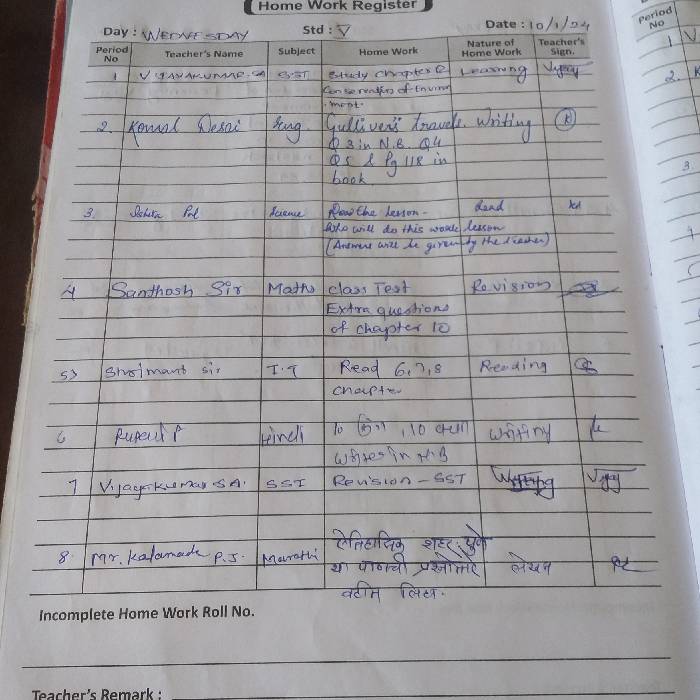 Home Work Register
Day : WEDNESDAY Std : V Date : 10/1/24
Period No Teacher's Name Subject Home Work Nature of Home Work Teacher's Sign.
1 VIJAYAKUMAR.SA SST Study Chapter 2 Learning Vijay
Conservation of Environ
-ment.
2. Komal Desai Eng. Gulliver's travels. Writing
Q 3 in N.B. Q4
Q5 & Pg 118 in
book.
3. Science Read
who will do this lesson
(Answers will be given by the teacher)
4 Santhosh Sir Maths class Test Revision
Extra questions
of chapter 10
5) Shrimant sir I.T Read 6,7,8 Reading
chapter
6 Rupali P Hindi 10 , 10 writing
write in N.B
7 Vijayakumar SA. SST Revision - SST Writing Vijay
8. Mr. Kalamade P.J. Marathi ऐतिहासिक शहर : पुणे
या पाठाची प्रश्नोत्तरे लेखन
वहीत लिहा.
Incomplete Home Work Roll No.
Teacher's Remark :
Period No
1 V
2.
3.